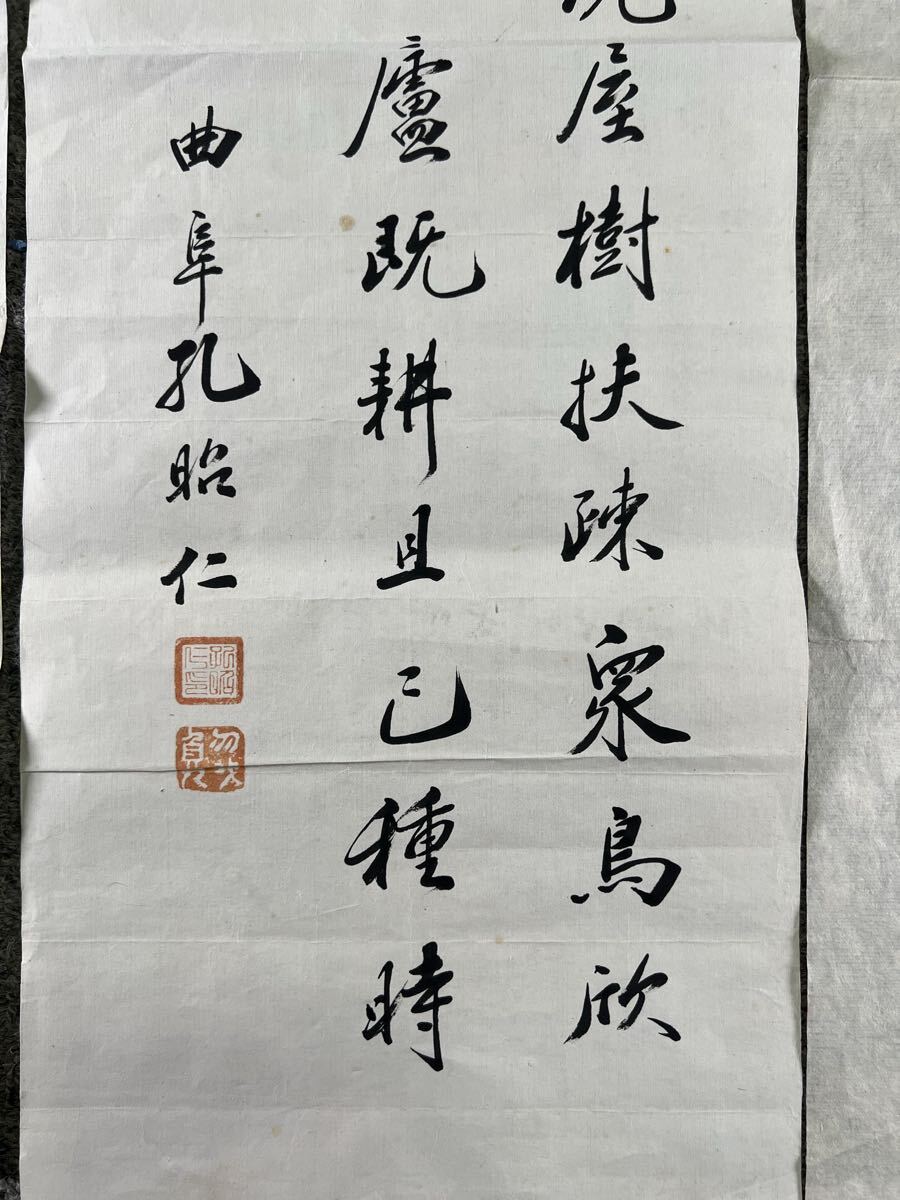 屋樹扶疎衆鳥欣
廬既耕且已種時
曲阜孔昭仁